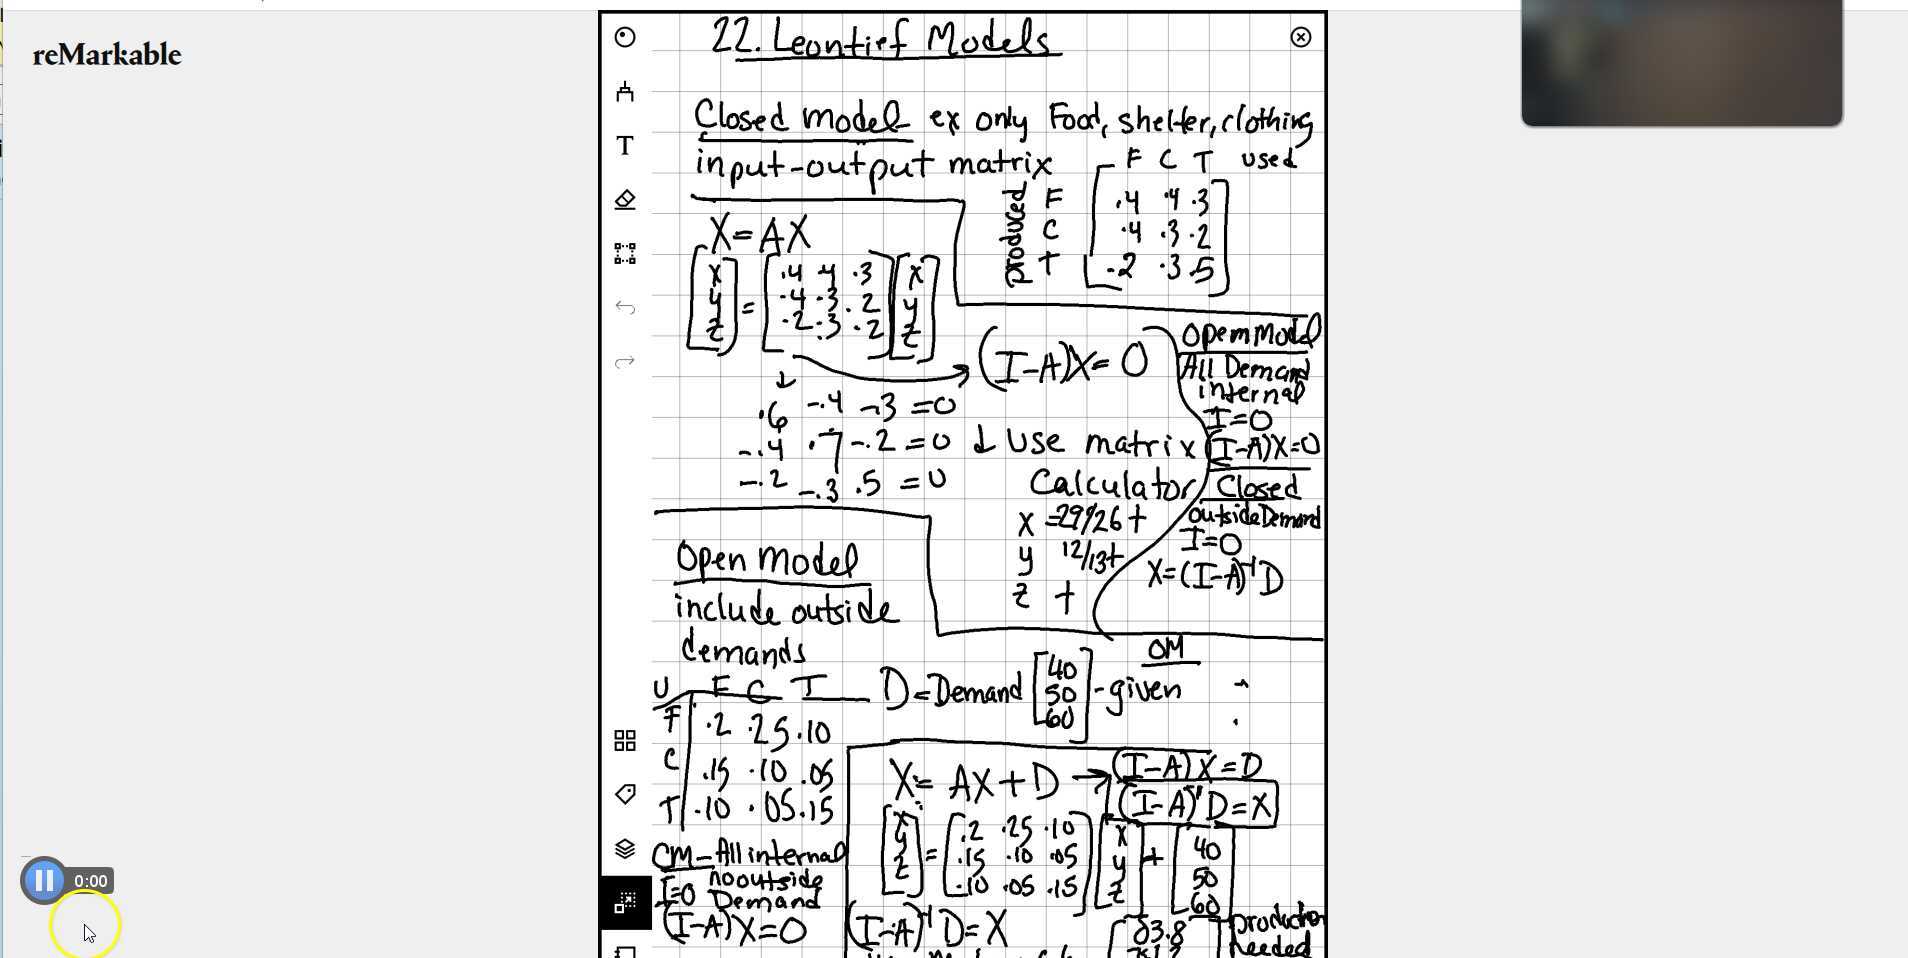 reMarkable
22. Leontief Models
Closed model ex only Food, shelter, clothing
input-output matrix
F C T used
produced
F .4 .4 .3
C .4 .3 .2
T .2 .3 .5
X=AX
[x y z] = [.4 .4 .3
.4 .3 .2
.2 .3 .2] [x y z]
(I-A)X=0
.6 -.4 -.3 =0
-.4 .7 -.2 =0
-.2 -.3 .5 =0
↓ Use matrix
Calculator
x =29/26 t
y 12/13t
z t
Open Model
All Demand
internal
I=0
(I-A)X=0
Closed
outside Demand
I=0
X=(I-A)⁻¹D
Open Model
include outside
demands
U F C T
F .2 .25 .10
C .15 .10 .05
T .10 .05 .15
D=Demand [40 50 60] -given
OM
CM - All internal
no outside
I=0 Demand
(I-A)X=0
X= AX + D → (I-A)X=D
(I-A)⁻¹D=X
[x y z] = [.2 .25 .10
.15 .10 .05
.10 .05 .15] [x y z] + [40 50 60]
(I-A)⁻¹D=X
production
needed
T
0:00